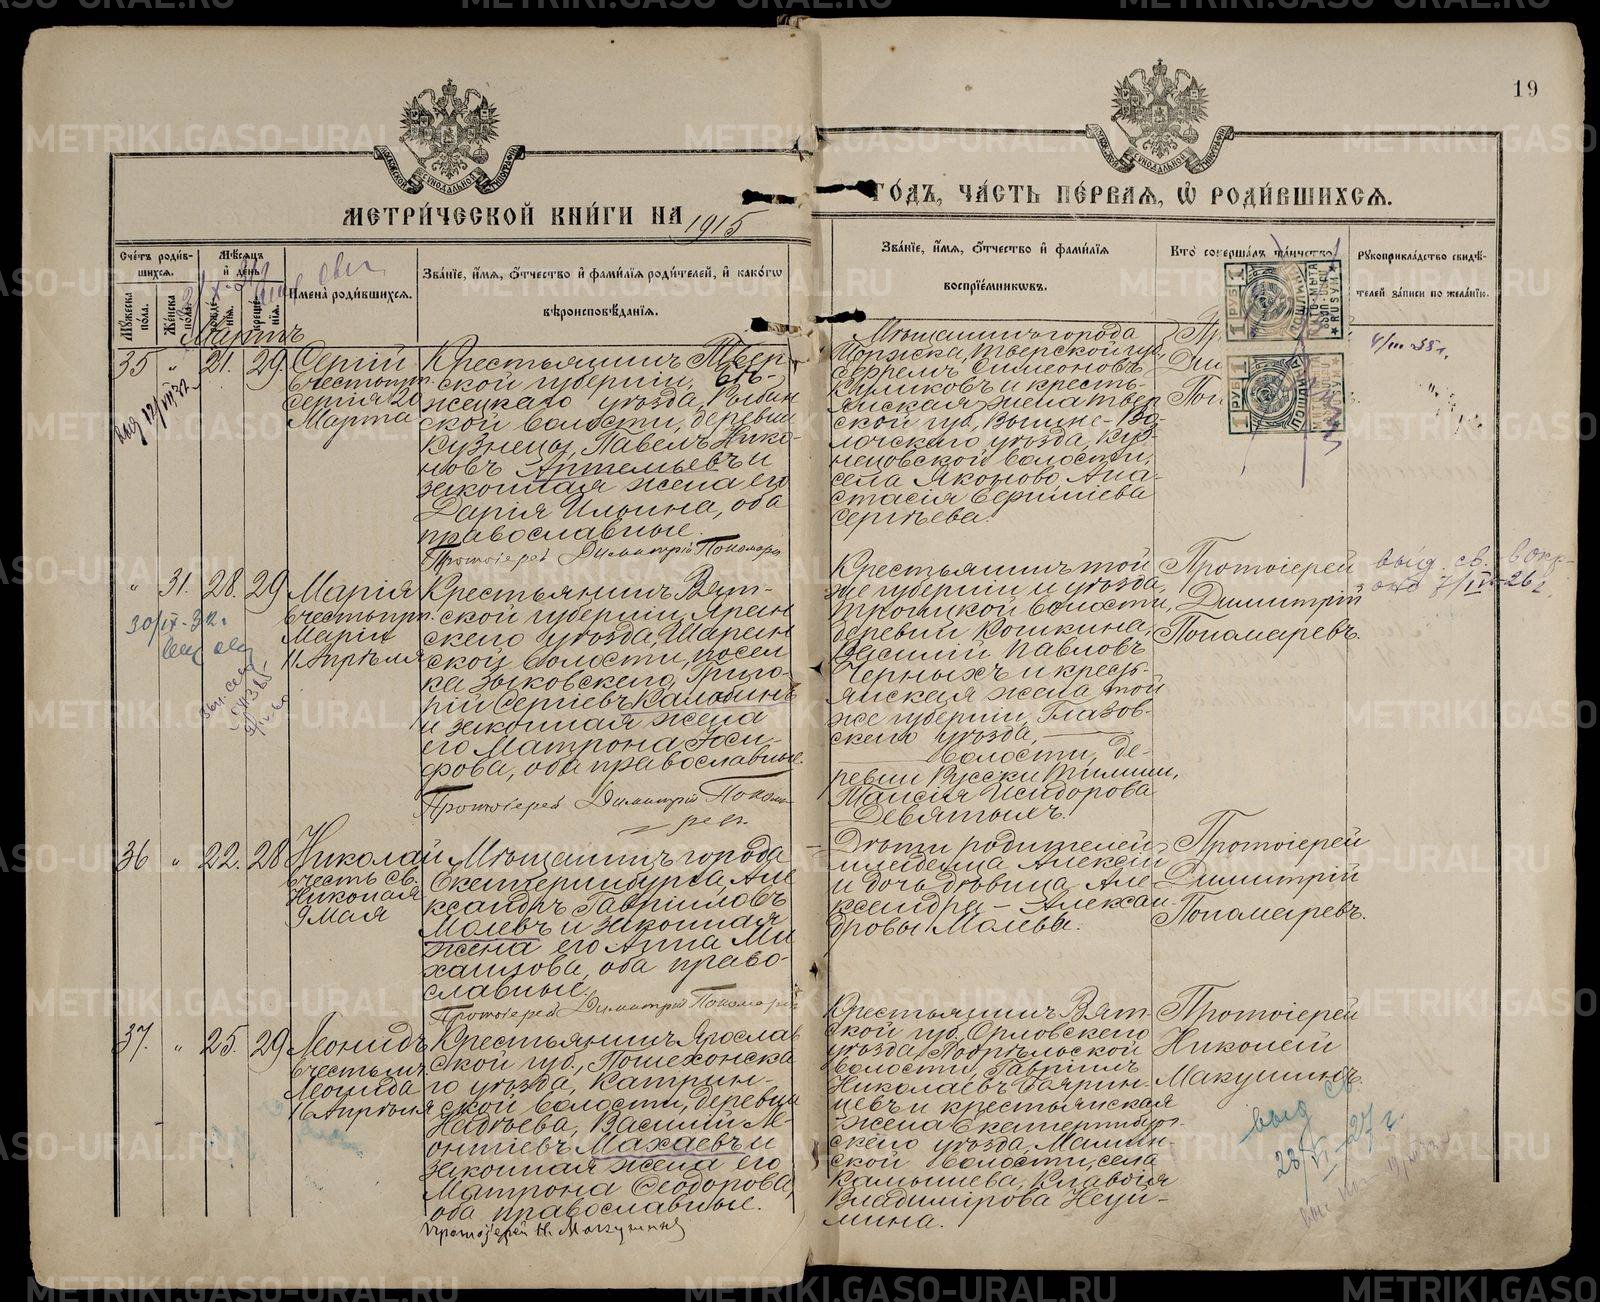 19
МЕТРИ́ЧЕСКОЙ КНИ́ГИ НА 1915
ГО́ДЪ, ЧА́СТЬ ПЕ́РВАЯ, Ѡ҆ РОДИ́ВШИХСЯ.
Сче́тъ роди́в-
шихся.
Мꙋ́жеска
по́ла.
Же́нска
по́ла.
Мѣ́сяцъ
и҆ де́нь
рожде́-
нїя.
креще́-
нїя.
И҆мена̀ роди́вшихся.
Зва́нїе, и҆́мя, ѻ҆́тчество и҆ фами́лїя роди́телей, и҆ како́гѡ
вѣроисповѣ́данїя.
Зва́нїе, и҆́мя, ѻ҆́тчество и҆ фами́лїя
воспрїе́мниковъ.
Кто̀ соверша́лъ та́инство
Рꙋкоприкла́дство свидѣ́-
телей за́писи по жела́нїю.
Мартъ
35 " 21. 29
Сергiй
въ честь прп.
Сергiя 20
Марта
Крестьянинъ Твер-
ской губернiи, Бѣ-
жецкаго уѣзда,
ской волости, деревни
Кузнецы, Павелъ Нико-
новъ Артемьевъ и
законная жена его
Дарiя Ильина, оба
православные.
Протоiерей Димитрiй Пономарь
Мѣщанинъ города
Торжка, Тверской губ.,
Симеоновъ
Куликовъ и кресть-
янская жена Твер
ской губ., Вышне-Во-
лочскаго уѣзда, Куз-
нецовской волости,
села Яконово, Ана-
стасiя
Сергѣева.
1 РУБ
1 РУБ
" 31. 28. 29
30/IX-32.
Марiя
въ честь прп.
Марiи
1 Апрѣля
Крестьянинъ Вят-
ской губернiи, Яран
скаго уѣзда, Шаран
ской волости, посел
ка Зыковскаго, Григо-
рiй Сергiевъ Калабинъ
и законная жена
его Матрона Iоси-
фова, оба православные.
Протоiерей Димитрiй Понома-
рев.
Крестьянинъ той
же губернiи и уѣзда,
Троицкой волости,
деревни Кошкина,
Василiй Павловъ
Черныхъ и кресть-
янская жена той
же губернiи, Глазов-
скаго уѣзда,
волости, де-
ревни Русски
Таисiя Исидорова
Девятыхъ.
Протоiерей
Димитрiй
Пономаревъ.
выд. св.
7/IV-26 г.
36 " 22. 28
Николай
въ честь св.
Николая
9 Мая
Мѣщанинъ города
Екатеринбурга, Але
ксандръ Гаврiиловъ
Молевъ и законная
жена его Анна Ми
хаилова, оба право-
славные.
Протоiерей Димитрiй Пономаревъ
Дѣти родителей
младенца Алексѣй
и дочь дѣвица Але
ксандра - Алексан
дровы Молевы.
Протоiерей
Димитрiй
Пономаревъ.
37. " 25. 29
Леонидъ
въ честь мч.
Леонида
16 Апрѣля
Крестьянинъ Ярослав
ской губ., Пошехонска
го уѣзда, Катрин-
ской волости, деревни
Надѣева, Василiй Ле-
онтiевъ Махаевъ и
законная жена его
Матрона Ѳеодорова,
оба православные.
Протоiерей Н. Макушинъ
Крестьянинъ Вят-
ской губ., Орловскаго
уѣзда,
волости, Гаврiилъ
Николаевъ Боярин-
цевъ и крестьянская
жена Екатеринбург-
скаго уѣзда, Мамин-
ской волости, села
Камышева, Клавдiя
Владимiрова Неуй-
мина.
Протоiерей
Николай
Макушинъ.
выд св.
28/VI-27 г.
METRIKI.GASO-URAL.RU